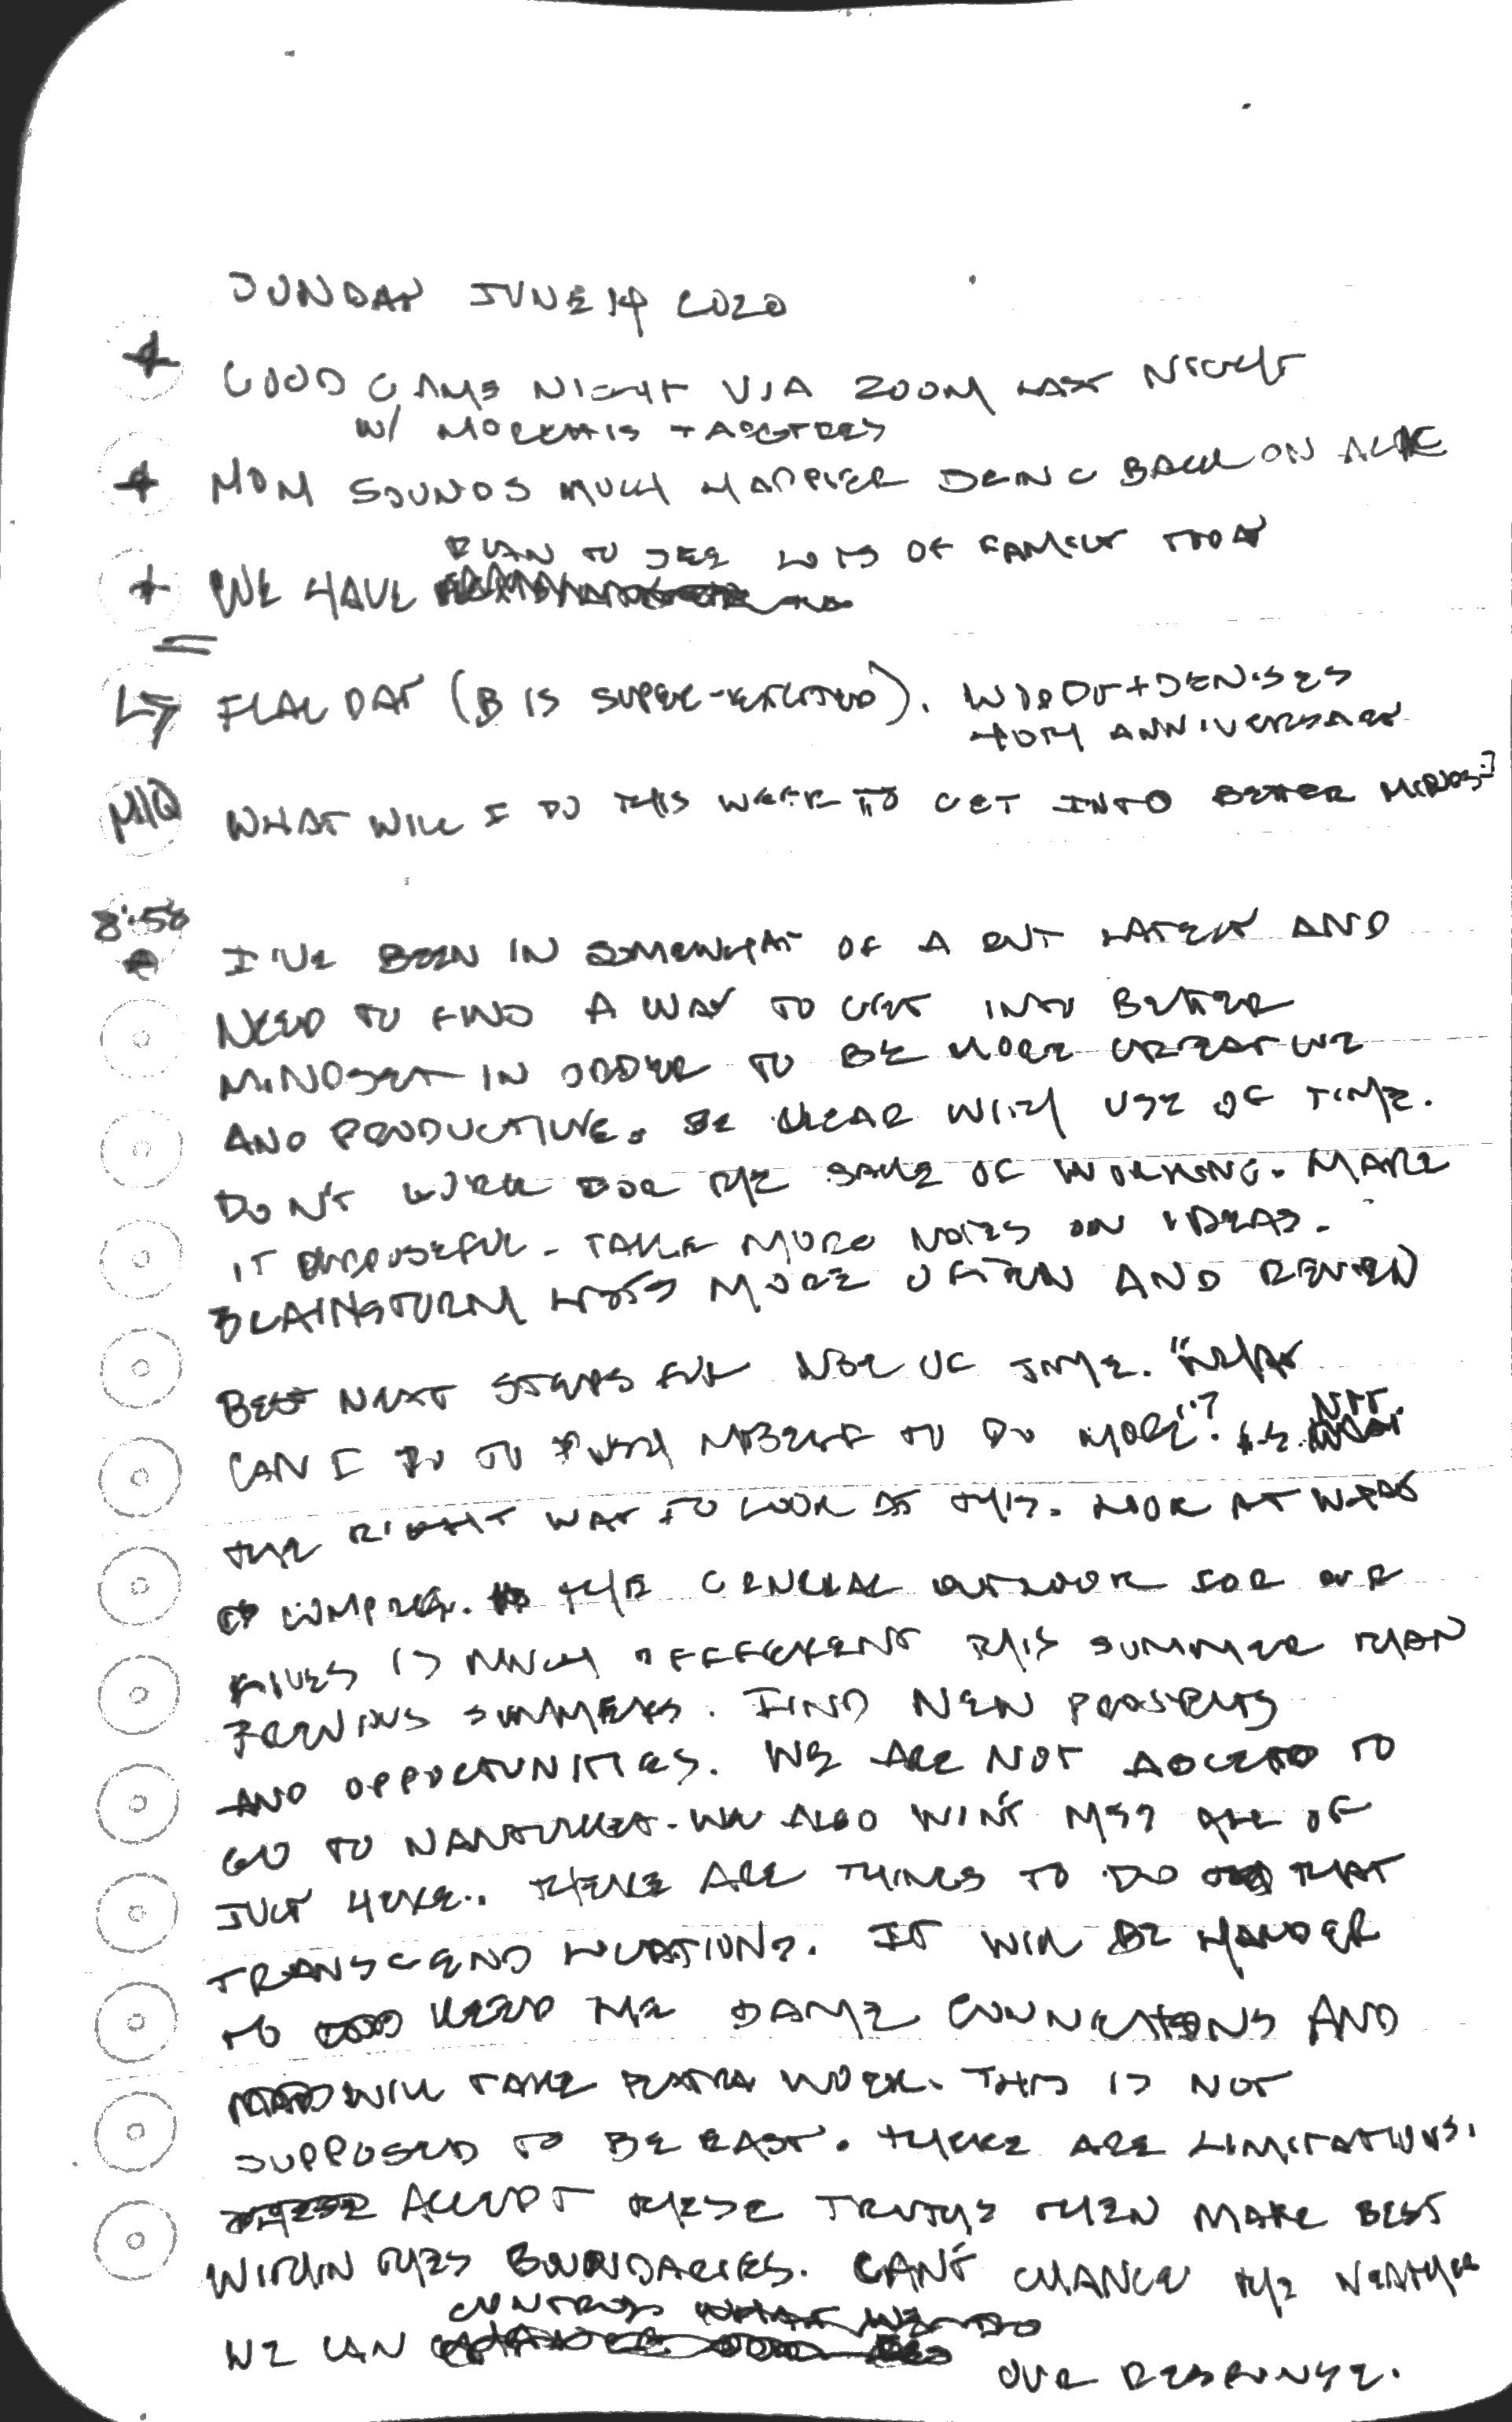 SUNDAY JUNE 14 2020
+ GOOD GAME NIGHT VIA ZOOM LAST NIGHT
w/
+ MOM SOUNDS MUCH HAPPIER BEING BACK ON
PLAN TO SEE LOTS OF FAMILY TODAY
+ WE HAVE
FLAG DAY (B IS SUPER-EXCITED). + DENISES
40TH ANNIVERSARY
MIQ WHAT WILL I DO THIS WEEK TO GET INTO BETTER
8:58
I'VE BEEN IN SOMEWHAT OF A RUT LATELY AND
NEED TO FIND A WAY TO GET INTO BETTER
MINDSET IN ORDER TO BE MORE CREATIVE
AND PRODUCTIVE. BE CLEAR WITH USE OF TIME.
DON'T WORK FOR THE SAKE OF WORKING. MAKE
IT PURPOSEFUL. TAKE MORE NOTES ON IDEAS.
BRAINSTORM LISTS MORE OFTEN AND REVIEW
BEST NEXT STEPS FOR USE OF TIME. "WHAT
CAN I DO TO PUSH MYSELF TO DO MORE"? IS NOT
THE RIGHT WAY TO LOOK AT THIS. LOOK AT WHAT
THE GENERAL OUTLOOK FOR OUR
LIVES IS MUCH DIFFERENT THIS SUMMER THAN
PREVIOUS SUMMERS. FIND NEW PROSPECTS
AND OPPORTUNITIES. WE ARE NOT TO
GO TO NANTUCKET. WE ALSO WON'T OF
JUST HERE. THERE ARE THINGS TO DO THAT
TRANSCEND LOCATIONS. IT WILL BE HARDER
TO KEEP THE SAME CONNECTIONS AND
WILL TAKE EXTRA WORK. THIS IS NOT
SUPPOSED TO BE EASY. THERE ARE LIMITATIONS.
ACCEPT THESE TRUTHS THEN MAKE BEST
WITHIN THE BOUNDARIES. CAN'T CHANGE THE WEATHER
CONTROL
WE CAN OUR RESPONSE.